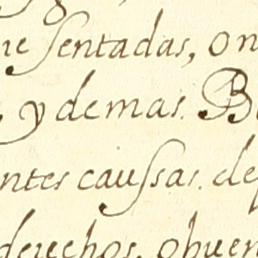 sentadas, on
y demas. B
ntes caussas. de
derechos, obuen